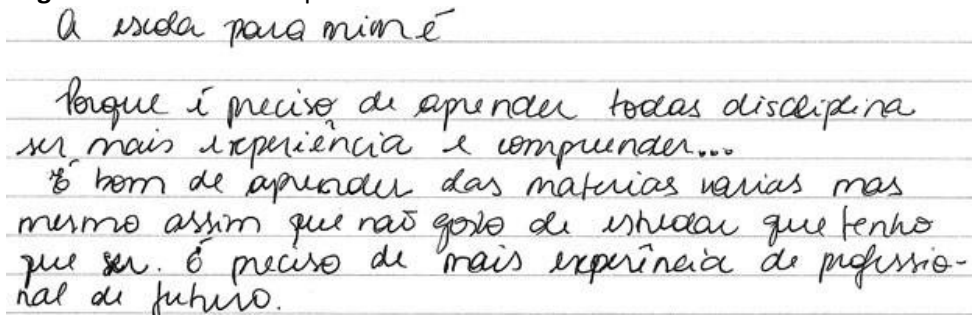 A escola para mim é
Porque é preciso de aprender todas discliplina
ser mais experiência e compreender...
É bom de aprender das materias varias mas
mesmo assim que naõ gosto de estudar que tenho
que ser. é preciso de mais experincia de profissio-
nal de futuro.